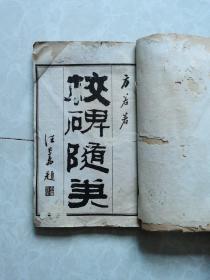 方若著
校碑隨筆
汪題